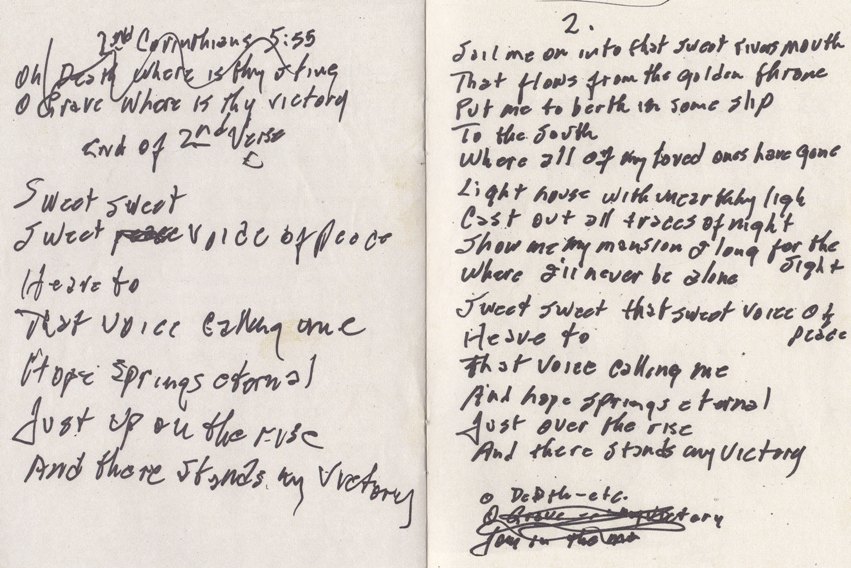 2nd Corinthians 5:55
Oh Death Where is thy sting
O Grave Where is thy victory
End of 2nd Verse
Sweet sweet
Sweet peace voice of Peace
Heave to
That voice calling me
Hope springs eternal
Just up on the rise
And there stands my victory
2.
Sail me on into that sweet rivers mouth
That flows from the golden throne
Put me to berth in some slip
To the South
Where all of my loved ones have gone
Light house with unearthly ligh
Cast out all traces of night
Show me my mansion I long for the
sight
Where I'll never be alone
Sweet sweet that sweet voice of
peace
Heave to
That voice calling me
And hope springs eternal
Just over the rise
And there stands my victory
O Death-etc.
O Grave victory